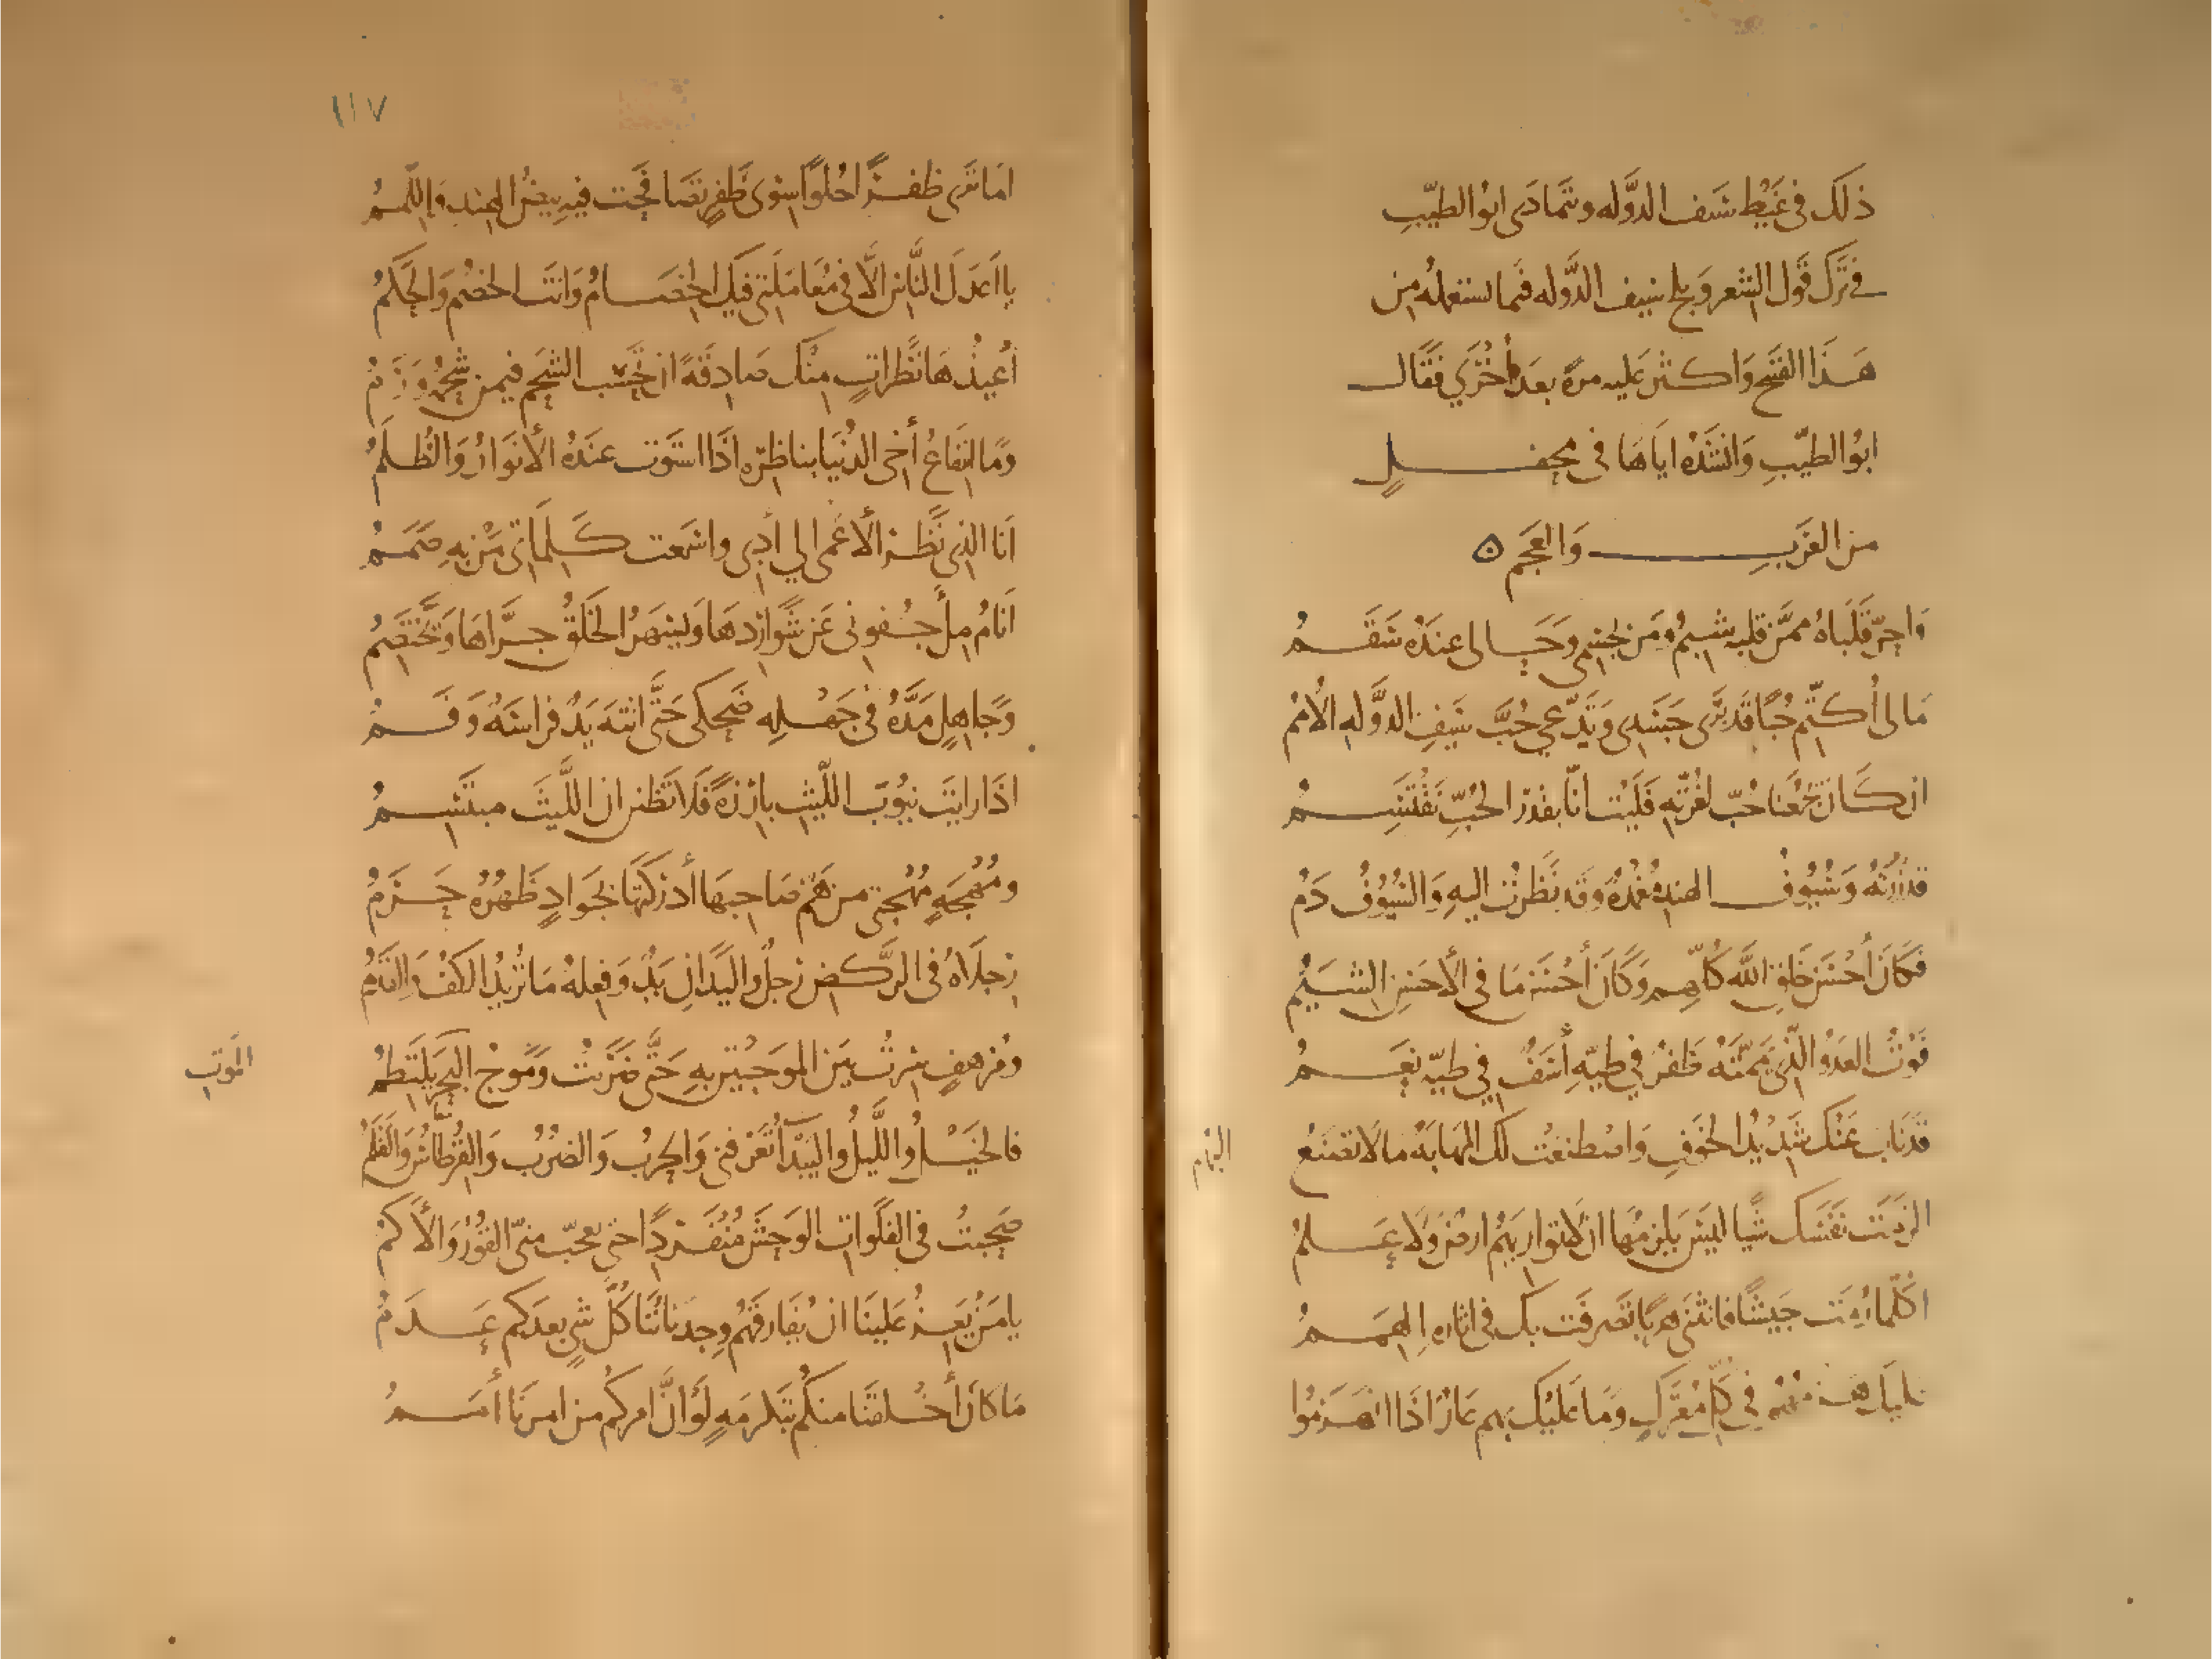 ذلك في غيظ سيف الدوله وتمادى ابو الطيب
في ترك قول الشعر ويلح سيف الدوله فيما يستعمله من
هذا القبيح واكثر عليه مرة بعد اخرى فقال
ابو الطيب وانشده اياها في محفل
من العرب والعجم
واحرّ قلباه ممن قلبه شبم ومن بجسمى وحالى عنده سقم
مالى أكتّم حبا قد برى جسدى وتدّعي حبّ سيف الدوله الأمم
ان كان يجمعنا حبّ لغرّته فليت انّا بقدر الحبّ نقتسم
قد زرته وسيوف الهند مغمدة وقد نظرت اليه والسيوف دم
فكان أحسن خلق الله كلهم وكان أحسن ما في الأحسن الشيم
فوت العدو الذي يممته ظفر في طيّه أسف في طيّه نعم
قد ناب عنك شديد الخوف واصطنعت لك المهابة ما لا تصنع
البهم
الزمت نفسك شيا ليس يلزمها ان لا تواريهم ارض ولا علم
اكلما رمت جيشا فانثنى هربا تصرفت بك في اثاره الهمم
عليك هزمهم في كل معترك وما عليك بهم عار اذا انهزموا
١١٧
اما ترى ظفرا حلوا سوى ظفر تصافحت فيه بيض الهند واللمم
يا اعدل الناس الا في معاملتي فيك الخصام وانت الخصم والحكم
أعيذها نظرات منك صادقة ان تحسب الشحم فيمن شحمه ورم
وما انتفاع أخى الدنيا بناظره اذا استوت عنده الأنوار والظلم
انا الذى نظر الأعمى الي أدبى واسمعت كلماتى من به صمم
انام ملأ جفونى عن شواردها ويسهر الخلق جراها وتختصم
وجاهل مده في جهله ضحكى حتى اتته يد فراسة وفم
اذا رايت نيوب الليث بارزة فلا تظنن ان الليث مبتسم
ومهجة مهجتى من هم صاحبها أدركتها بجواد ظهره حرم
رجلاه في الركض رجل واليدان يد وفعله ما تريد الكف والقدم
ومرهف سرت بين الموجتين به حتى ضربت وموج البحر يلتطم
الموت
فالخيل والليل والبيدآ تعرفنى والحرب والضرب والقرطاس والقلم
صحبت في الفلوات الوحش منفردا حتى تعجب منى القور والأكم
يا من يعز علينا ان نفارقهم وجداننا كل شي بعدكم عدم
ما كان أخلقنا منكم بتكرمة لو ان امركم من امرنا أمم